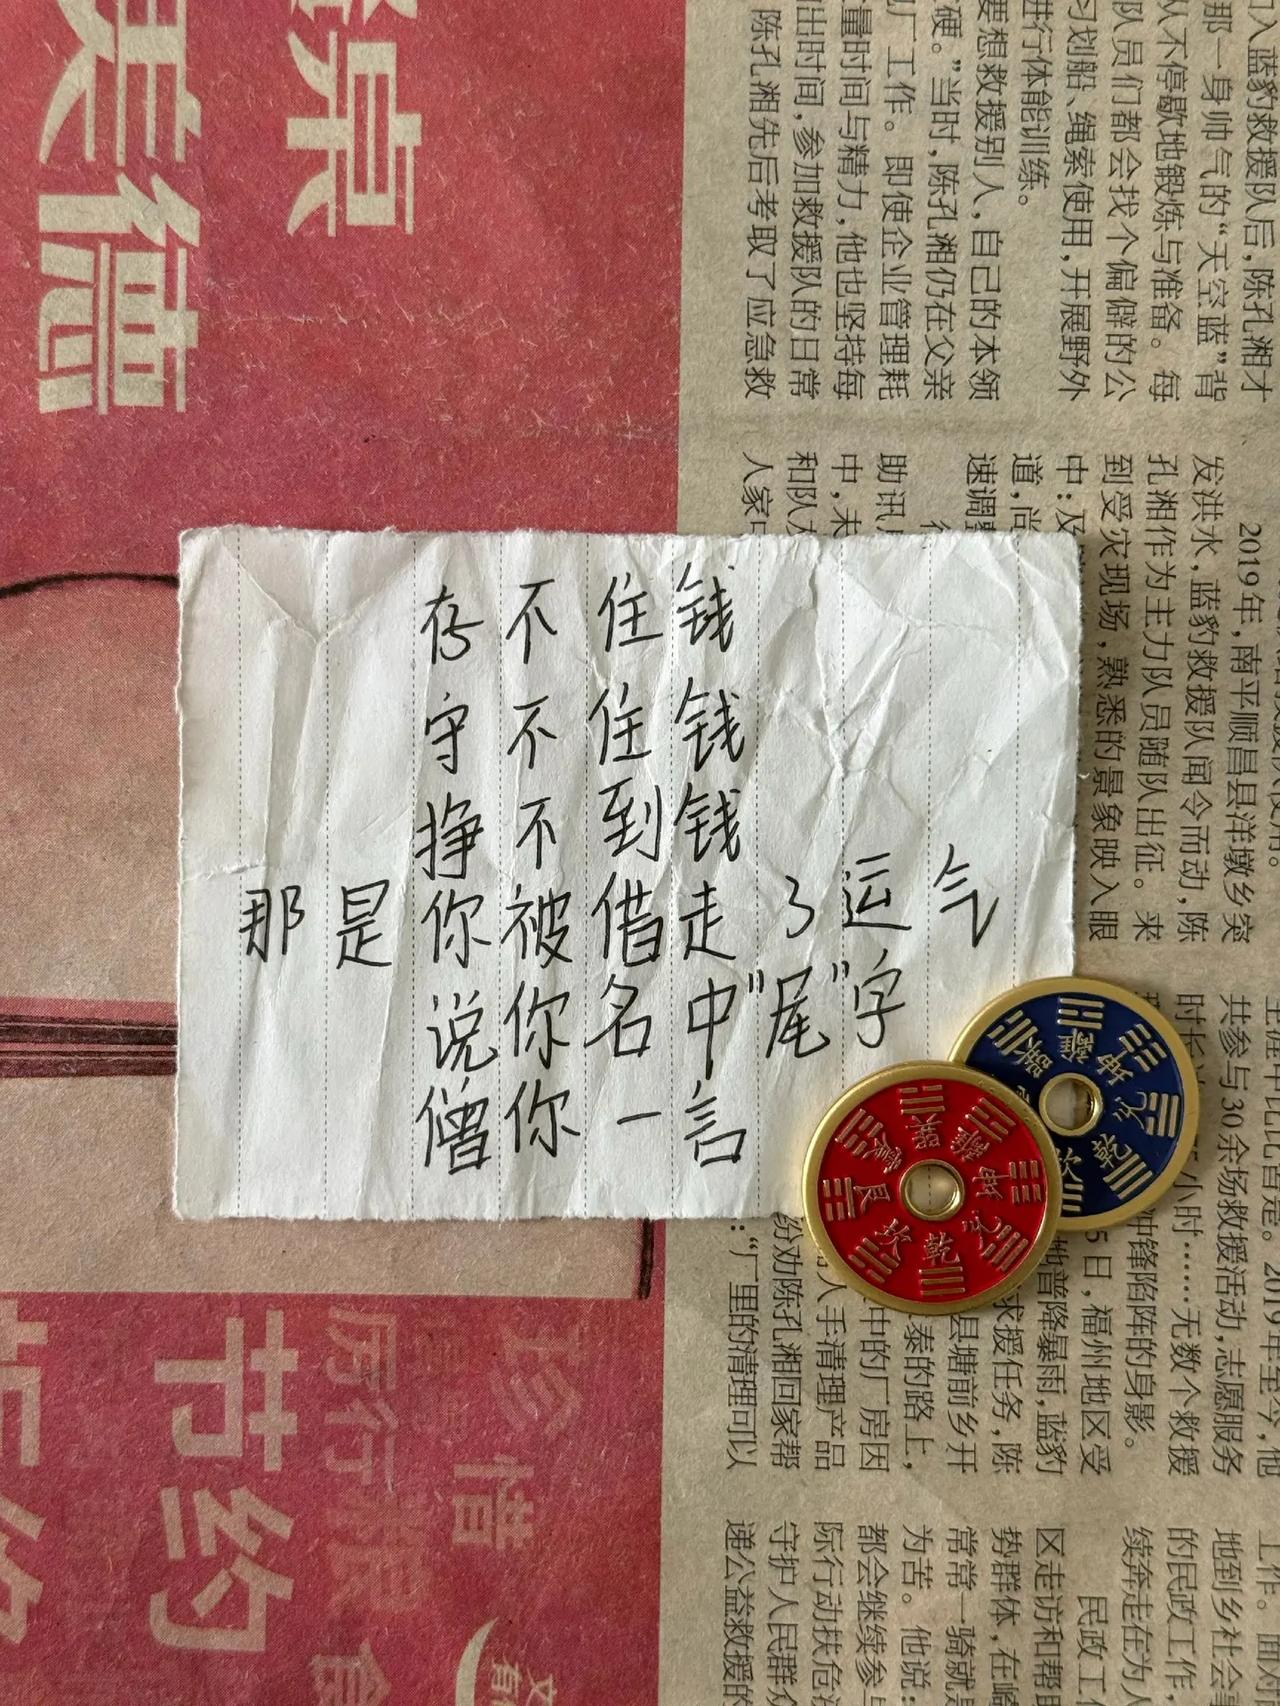 存不住钱
守不住钱
挣不到钱
那是你被借走了运气
说你名中"尾"字
僧你一言
离
坤
兑
乾
坎
离
坤
兑
乾
坎
艮
震
桌
美德
节约
珍惜
厉行
粮
食
加入蓝豹救援队后，陈孔湘才
那一身帅气的“天空蓝”背
从不停歇地锻炼与准备。每
队员们都会找个偏僻的公
习划船、绳索使用，开展野外
进行体能训练。
要想救援别人，自己的本领
硬。”当时，陈孔湘仍在父亲
厂工作。即使企业管理耗
量时间与精力，他也坚持每
出时间，参加救援队的日常
陈孔湘先后考取了应急救
2019年，南平顺昌县洋墩乡突
发洪水，蓝豹救援队闻令而动，陈
孔湘作为主力队员随队出征。来
到受灾现场，熟悉的景象映入眼
中：及
道，尚
速调整
助讯
中，未
和队友
人家中
共参与30余场救援活动，志愿服务
时长
小时……无数个救援
冲锋陷阵的身影。
5日，福州地区受
地普降暴雨，蓝豹
求援任务，陈
县塘前乡开
泰的路上，
中的厂房因
人手清理产品
纷劝陈孔湘回家帮
：“厂里的清理可以
工作。面对
地到乡社会
的民政工作
续奔走在为
民政工
区走访和帮
势群体，在崎
常常一骑就是
为苦。他说：
都会继续参与
际行动扶危
守护人民群众
递公益救援的